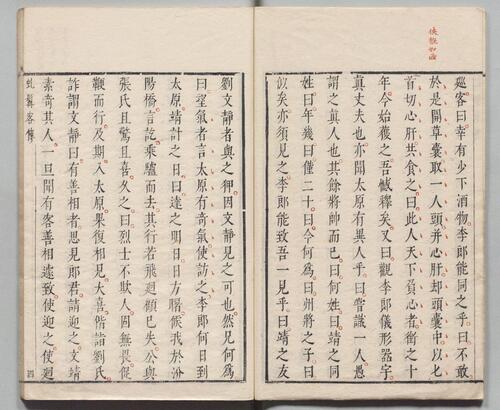 俠態如画
廵客曰幸有少下酒物李郎能同之乎曰不敢
於是開革囊取一人頭并心肝却頭囊中以匕
首切心肝共食之曰此人天下負心者銜之十
年今始獲之吾憾釋矣又曰觀李郎儀形器宇
真丈夫也亦聞太原有異人乎曰嘗識一人愚
謂之真人也其餘將帥而已曰何姓曰靖之同
姓曰年幾曰僅二十曰今何為曰州將之子曰
似矣亦須見之李郎能致吾一見乎曰靖之友
劉文靜者與之狎因文靜見之可也然兄何為
曰望氣者言太原有奇氣使訪之李郎何日到
太原靖計之日曰達之明日日方曙候我於汾
陽橋言訖乘驢而去其行若飛廻顧已失公與
張氏且驚且喜久之曰烈士不欺人固無畏促
鞭而行及期入太原果復相見大喜偕詣劉氏
詐謂文靜曰有善相者思見郎君請迎之文靖
素奇其人一旦聞有客善相遽致使迎之使廻
虬髯客傳
四